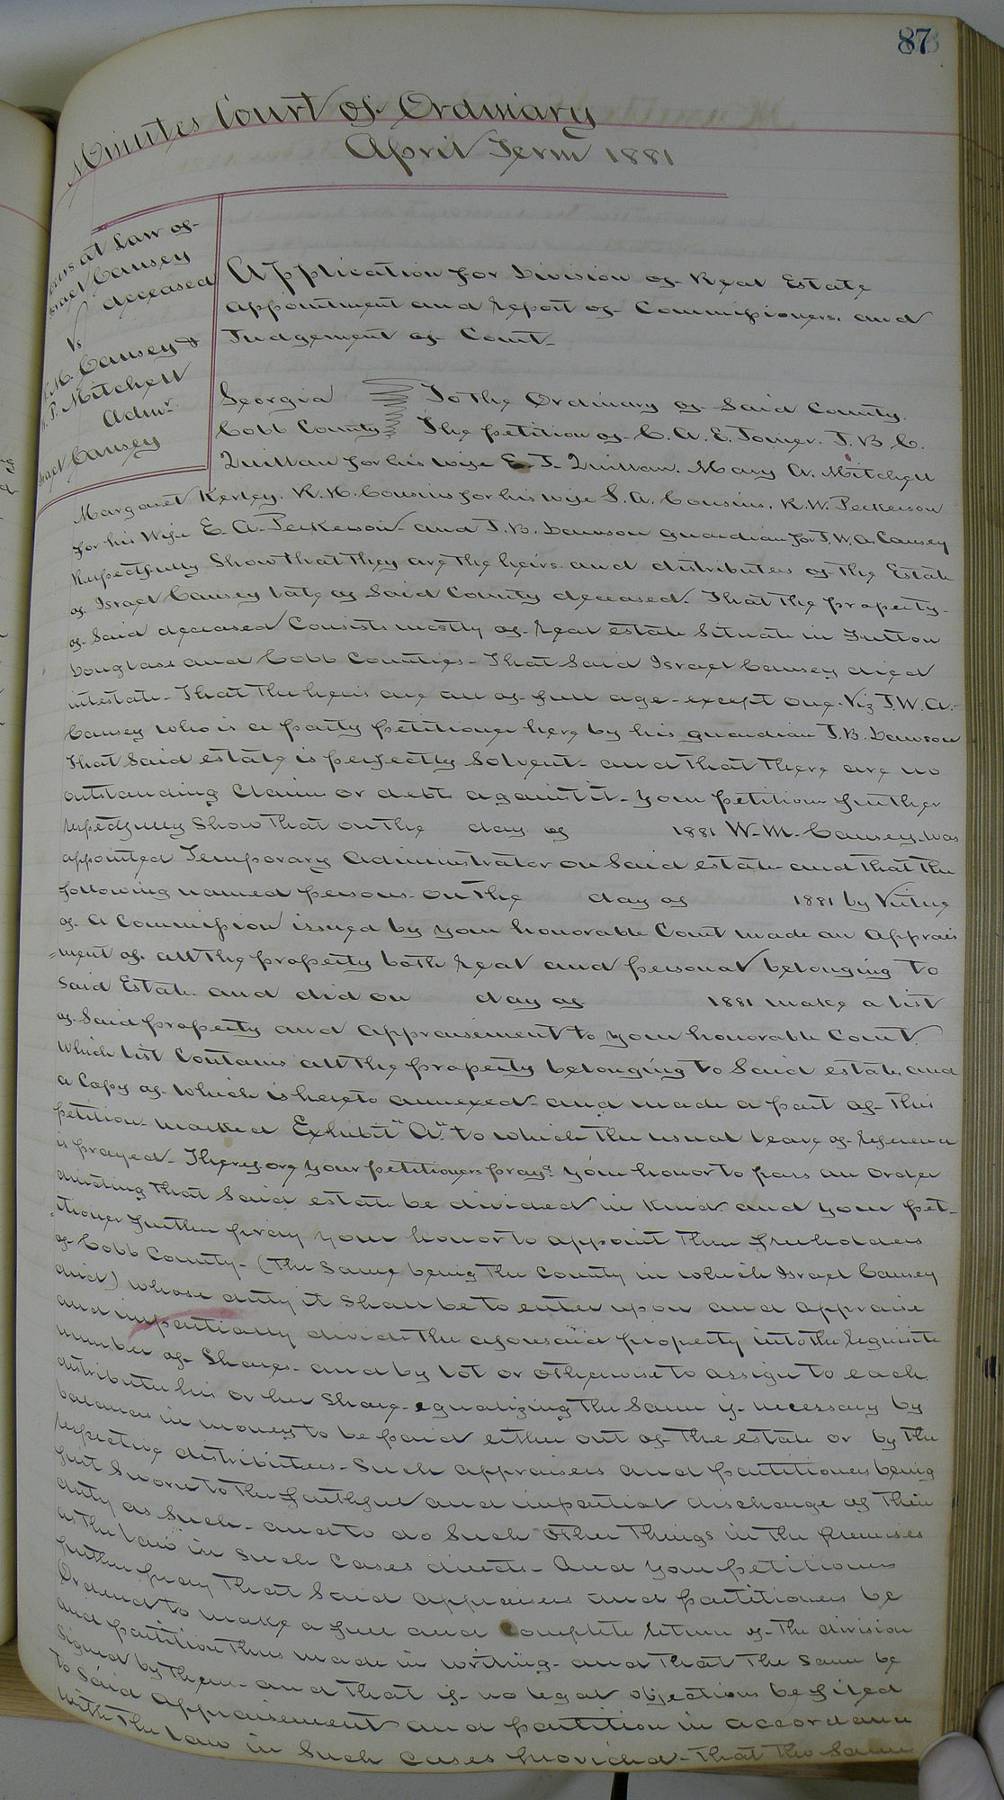 87
Minutes Court of Ordinary
April Term 1881
Heirs at Law of
Israel Causey
deceased
Vs
W. M. Causey &
Mitchell
Admr
Israel Causey
Application for Division of Real Estate
appointment and report of Commissioners, and
Judgement of Court-
Georgia To the Ordinary of Said County.
Cobb County The petition of C. A. E. Tomer. J. B. C.
Quillian for his wife E. J. Quillian. Mary A. Mitchell
Margaret Kerley. R. H. Cousins for his wife S. A. Cousins, R. W. Peckerson
for his Wife E. A. Peckerson and J. B. Dawson guardian for J. W. A. Causey
Respectfully Show that they are the heirs and distributees of the Estate
of Israel Causey late of Said County deceased. That the property
of Said deceased Consists mostly of real estate Situate in Fulton
Douglass and Cobb Counties- That Said Israel Causey died
intestate- That the heirs are all of full age except one. Viz J. W. A.
Causey who is a party petitioner here by his guardian J. B. Dawson
That Said estate is perfectly Solvent- and that there are no
outstanding Claims or debts against it- your petitioners further
respectfully Show that on the day of 1881 W. M. Causey was
appointed Temporary Administrator on Said estate and that the
following named persons on the day of 1881 by Virtue
of a Commission issued by your honorable Court made an Apprais
=ment of all the property both real and personal belonging to
Said Estate and did on day of 1881 make a list
of Said property and appraisement to your honorable Court.
Which list Contains all the property belonging to Said estate and
a Copy of which is hereto annexed- and made a part of this
petition- marked Exhibit "A" to which the usual leave of reference
is prayed- Therefore your petitioners prays your honor to pass an order
directing that Said estate be divided in Kind and your peti-
tioner further pray your honor to appoint three freeholders
of Cobb County- (The Same being the County in which Israel Causey
died) whose duty it Shall be to enter upon and appraise
and impartially divide the aforesaid property into the requisite
number of Shares- and by lot or otherwise to assign to each
distributee his or her Share- equalizing the Same if necessary by
balances in money to be paid either out of the estate or by the
respective distributees- Such appraisers and partitioners being
first Sworn to the faithful and impartial discharge of their
duty as Such- and to do Such other things in the premises
as the law in such Cases directs- And your petitioners
further pray that Said appraisers and partitioners be
Ordered to make a full and Complete return of the division
and partition thus made in writing- and that the same be
Signed by them- and that if no legal objections be filed
to Said Appraisement and partition in accordance
with the law in Such Cases provided- that the Same